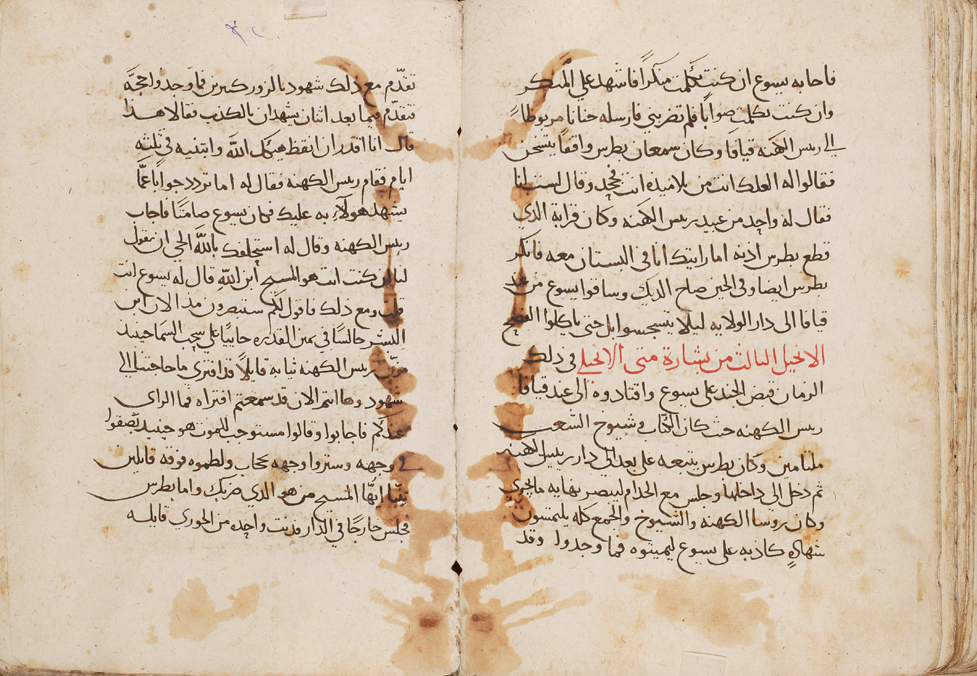 فاجابه يسوع ان كنت تكلمت منكرًا فاشهد علي المنكر
وان كنت تكلمت صوابًا فلم تضربني فارسله حنانا مربوطا
الي ريس الكهنه قيافا وكان سمعان بطرس واقفا يسخن
فقالوا له العلك انت من تلاميده انت فجحد وقال لست انا
فقال له واحد من عبيد ريس الكهنه وكان قرابة الدي
قطع بطرس ادنه اما رايتك انا في البستان معه فانكر
بطرس ايضا وفي الحين صاح الديك وساقوا يسوع من عند
قيافا الى دار الولايه ليلا يتنجسوا بل حتى ياكلوا الفصح
الانجيل الثالث من بشارة متى الانجيلي في دلك
الزمان قبض الجند على يسوع واقتادوه الى عند قيافا
ريس الكهنه حيث كان الكتاب وشيوخ الشعب
ملتامين وكان بطرس يتبعه على بعد الى دار ريس الكهنه
ثم دخل الى داخلها وجلس مع الخدام لينصر نهايه ما يجري
وكان روسا الكهنه والشيوخ والجمع كله يلتمسون
شهاده كاذبه على يسوع ليميتوه فما وجدوا وقد
تقدّم مع ذلك شهود بالزور كثيرين فما وجدوا حجّة
فتقدّم فيما بعد اثنان يشهدان بالكذب فقالا هذا
قال انا اقدر ان انقظ هيكل الله وابتنيه في ثلثه
ايام فقام ريس الكهنه فقال له اما تردد جوابًا عمّا
يشهد هولآء به عليك فكان يسوع صامتًا فاجاب
ريس الكهنه وقال له استحلفك بالله الحي ان تقول
لنا ان كنت انت هو المسيح ابن الله قال له يسوع انت
قلت ومع ذلك فاقول لكم ستبصرون مند الان ابن
البشر جالسًا في يمين القدره جاييًا على سحب السما حينيد
مزّق ريس الكهنه ثيابه قايلًا قد افترى ما حاجتنا الى
شهود وها انتم الان قد سمعتم افتراه فما الراي
عندكم فاجابوا وقالوا مستوجب للموت هو حينيد بصقوا
في وجهه وستروا وجهه بحجاب ولطموه فوقه قايلين
تنبّا ايهّا المسيح من هو الدي ضربك واما بطرس
فجلس خارجًا في الدار فدنت واحده من الجوري قايله